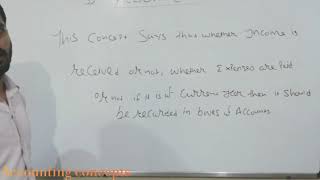 This Concept Says that whether Income is
received or not, whether Expenses are Paid
or not if it is of current year then it should
be recorded in books of Accounts
Accounting concepts